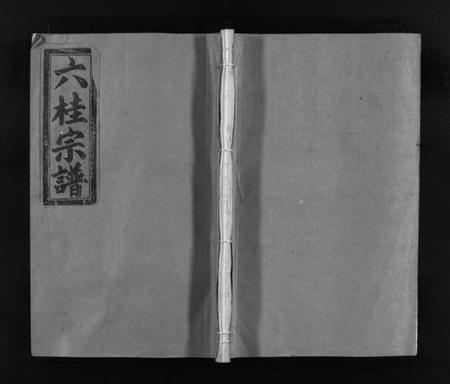 六桂宗譜